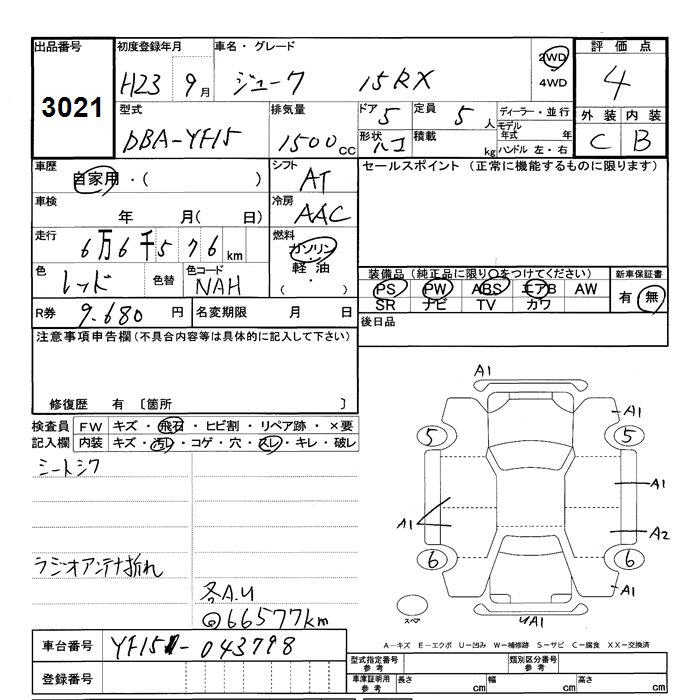 出品番号 初度登録年月 車名・グレード 評価点
3021 H23 9月 ジューク 15RX 2WD 4WD 4
型式 排気量 ドア 5 定員 5人 ディーラー・並行 外装 内装
DBA-YF15 1500cc 形状 積載 kg モデル年式 年 ハンドル 左・右 C B
車歴 自家用・( ) シフト AT セールスポイント (正常に機能するものに限ります)
車検 年 月( 日) 冷房 AAC
走行 6万6千576km 燃料 ガソリン・軽油・( )
色 レッド 色替 色コード NAH
装備品 (純正品に限り○をつけてください) 新車保証書
PS PW ABS エアB AW 有・無
SR ナビ TV カワ
R券 9.680円 名変期限 月 日 後日品
注意事項申告欄(不具合内容等は具体的に記入して下さい)
修復歴 有 〔箇所 〕
検査員 FW キズ・飛石・ヒビ割・リペア跡・×要
記入欄 内装 キズ・汚レ・コゲ・穴・スレ・キレ・破レ
シートシワ
ラジオアンテナ折れ
各A.U
@66577km
A1
A1
5 5
A1
A1 A2
6 6
A1
スペア UA1
A-キズ E-エクボ U-凹み W-補修跡 S-サビ C-腐食 XX-交換済
車台番号 YF15-043798
登録番号
型式指定番号 参考 類別区分番号 参考
車庫証明用 参考 長さ cm 幅 cm 高さ cm